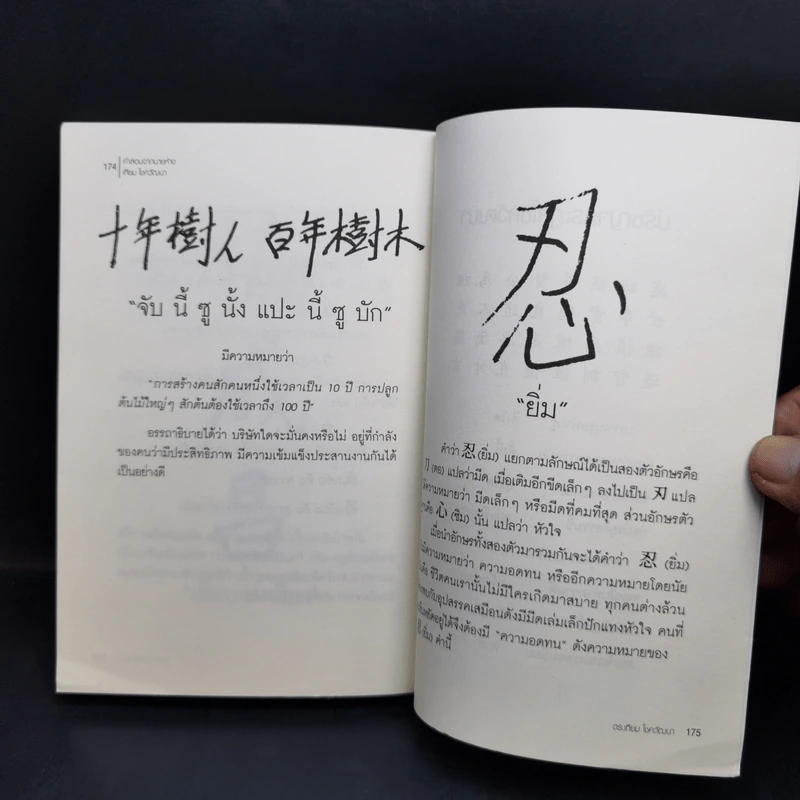 174
คำสอนจากนายห้าง
เทียม โชควัฒนา
十年樹人 百年樹木
"จับ นี้ ซู นั้ง แปะ นี้ ซู บัก"
มีความหมายว่า
"การสร้างคนสักคนหนึ่งใช้เวลาเป็น 10 ปี การปลูก
ต้นไม้ใหญ่ๆ สักต้นต้องใช้เวลาถึง 100 ปี"
อรรถาธิบายได้ว่า บริษัทใดจะมั่นคงหรือไม่ อยู่ที่กำลัง
ของคนว่ามีประสิทธิภาพ มีความเข้มแข็งประสานงานกันได้
เป็นอย่างดี
忍
"ยิ่ม"
คำว่า 忍 (ยิ่ม) แยกตามลักษณ์ได้เป็นสองตัวอักษรคือ
刀 (ตอ) แปลว่ามีด เมื่อเติมอีกขีดเล็กๆ ลงไปเป็น 刃 แปล
ความหมายว่า มีดเล็กๆ หรือมีดที่คมที่สุด ส่วนอักษรตัว
คือ 心 (ซิม) นั้น แปลว่า หัวใจ
เมื่อนำอักษรทั้งสองตัวมารวมกันจะได้คำว่า 忍 (ยิ่ม)
มีความหมายว่า ความอดทน หรืออีกความหมายโดยนัย
คือ ชีวิตคนเรานั้นไม่มีใครเกิดมาสบาย ทุกคนต่างล้วน
พบกับอุปสรรคเสมือนดังมีมีดเล่มเล็กปักแทงหัวใจ คนที่
อยู่ได้จึงต้องมี "ความอดทน" ดังความหมายของ
(ยิ่ม) คำนี้
ดร.เทียม โชควัฒนา 175